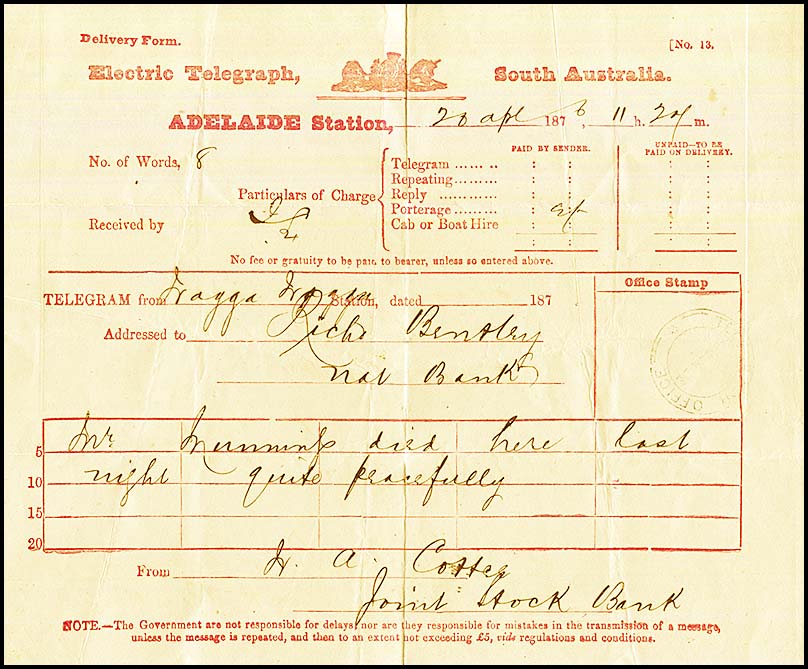 Delivery Form. [No. 13.
Electric Telegraph, South Australia.
ADELAIDE Station, 20 apl 1876 11 h. 24 m.
No. of Words, 8
Received by
Particulars of Charge
PAID BY SENDER.
UNPAID—TO BE PAID ON DELIVERY.
Telegram
Repeating
Reply
Porterage
Cab or Boat Hire
No fee or gratuity to be paid to bearer, unless so entered above.
TELEGRAM from Wagga Wagga Station, dated 187
Office Stamp
Addressed to Richd Bentley
Nat Bank
OFFICE
Mr died here last
5
night quite peacefully
10
15
20
From A.
Joint Stock Bank
NOTE.—The Government are not responsible for delays, nor are they responsible for mistakes in the transmission of a message,
unless the message is repeated, and then to an extent not exceeding £5, vide regulations and conditions.